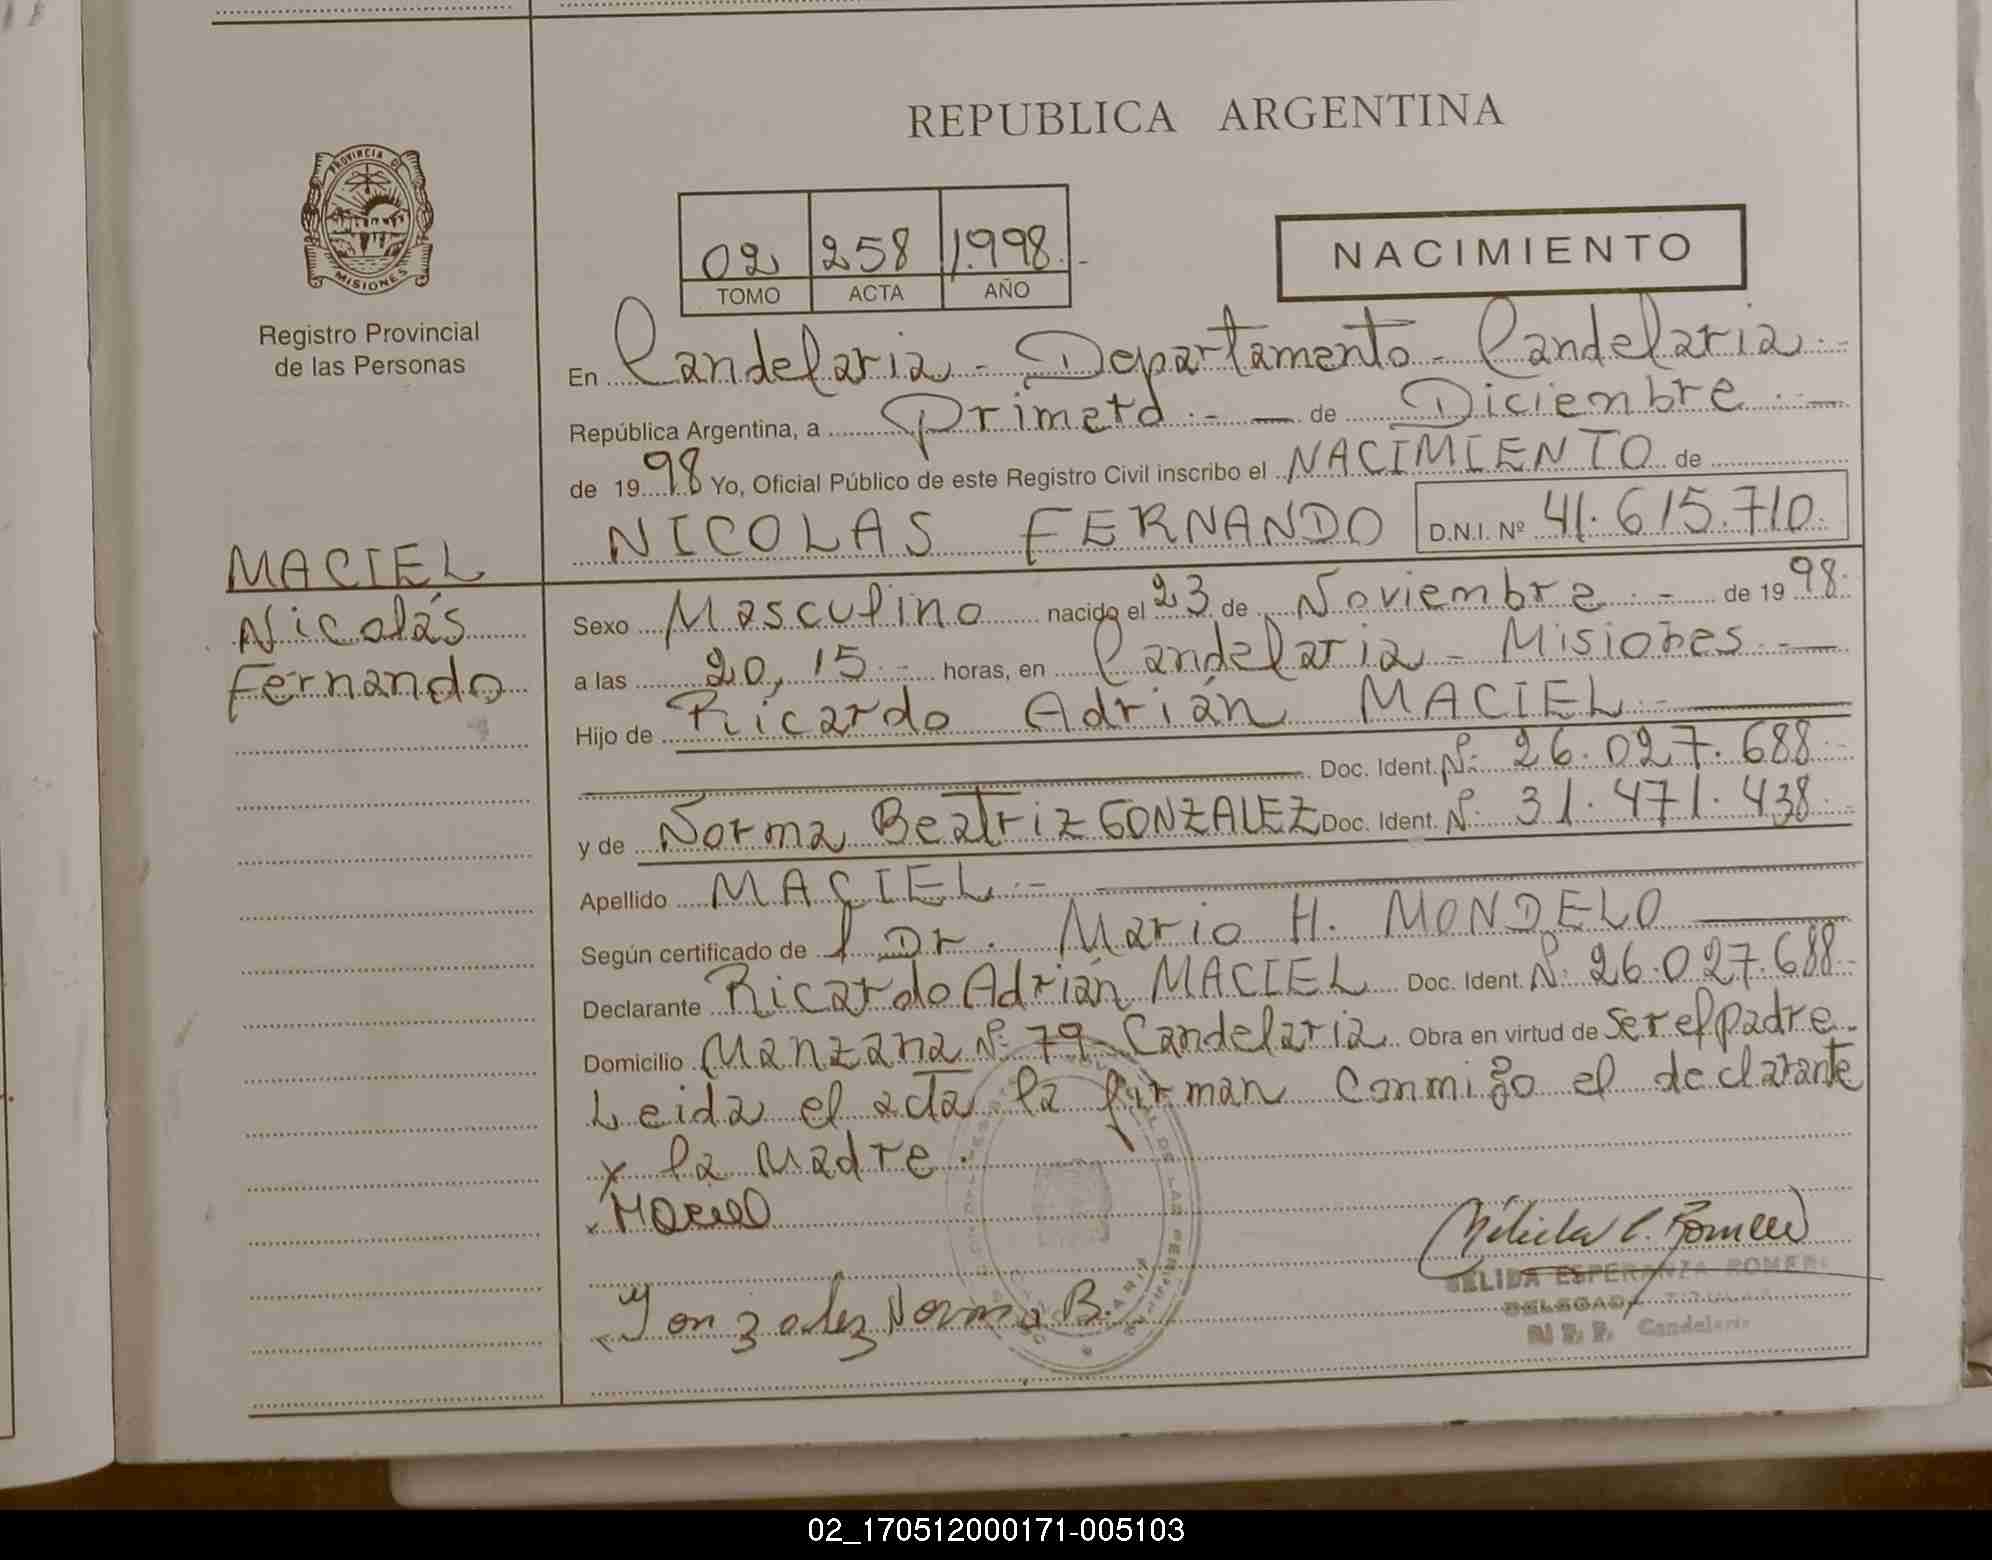 REPUBLICA ARGENTINA
PROVINCIA DE
MISIONES
Registro Provincial
de las Personas
02 258 1.998.-
TOMO ACTA AÑO
NACIMIENTO
En Candelaria - Departamento - Candelaria.-
República Argentina, a Primero.- — de Diciembre.-
de 1998 Yo, Oficial Público de este Registro Civil inscribo el NACIMIENTO de
NICOLAS FERNANDO D.N.I. Nº 41.615.710.
MACIEL
Nicolás
Fernando
Sexo Masculino nacido el 23 de Noviembre.- de 1998.
a las 20,15.- horas, en Candelaria - Misiones.-
Hijo de Ricardo Adrián MACIEL.-
Doc. Ident. Nº: 26.027.688.-
y de Norma Beatriz GONZALEZ Doc. Ident. Nº: 31.471.438.-
Apellido MACIEL.-
Según certificado de l Dr. Mario H. MONDELO
Declarante Ricardo Adrián MACIEL Doc. Ident. Nº: 26.027.688.-
Domicilio Manzana Nº 79- Candelaria. Obra en virtud de ser el padre.-
Leida el acta la firman conmigo el declarante
y la madre.
x Maciel
Gonzalez Norma B.
ELIDA ESPERANZA ROMERO
DELEGADA TITULAR
Candelaria
02_170512000171-005103